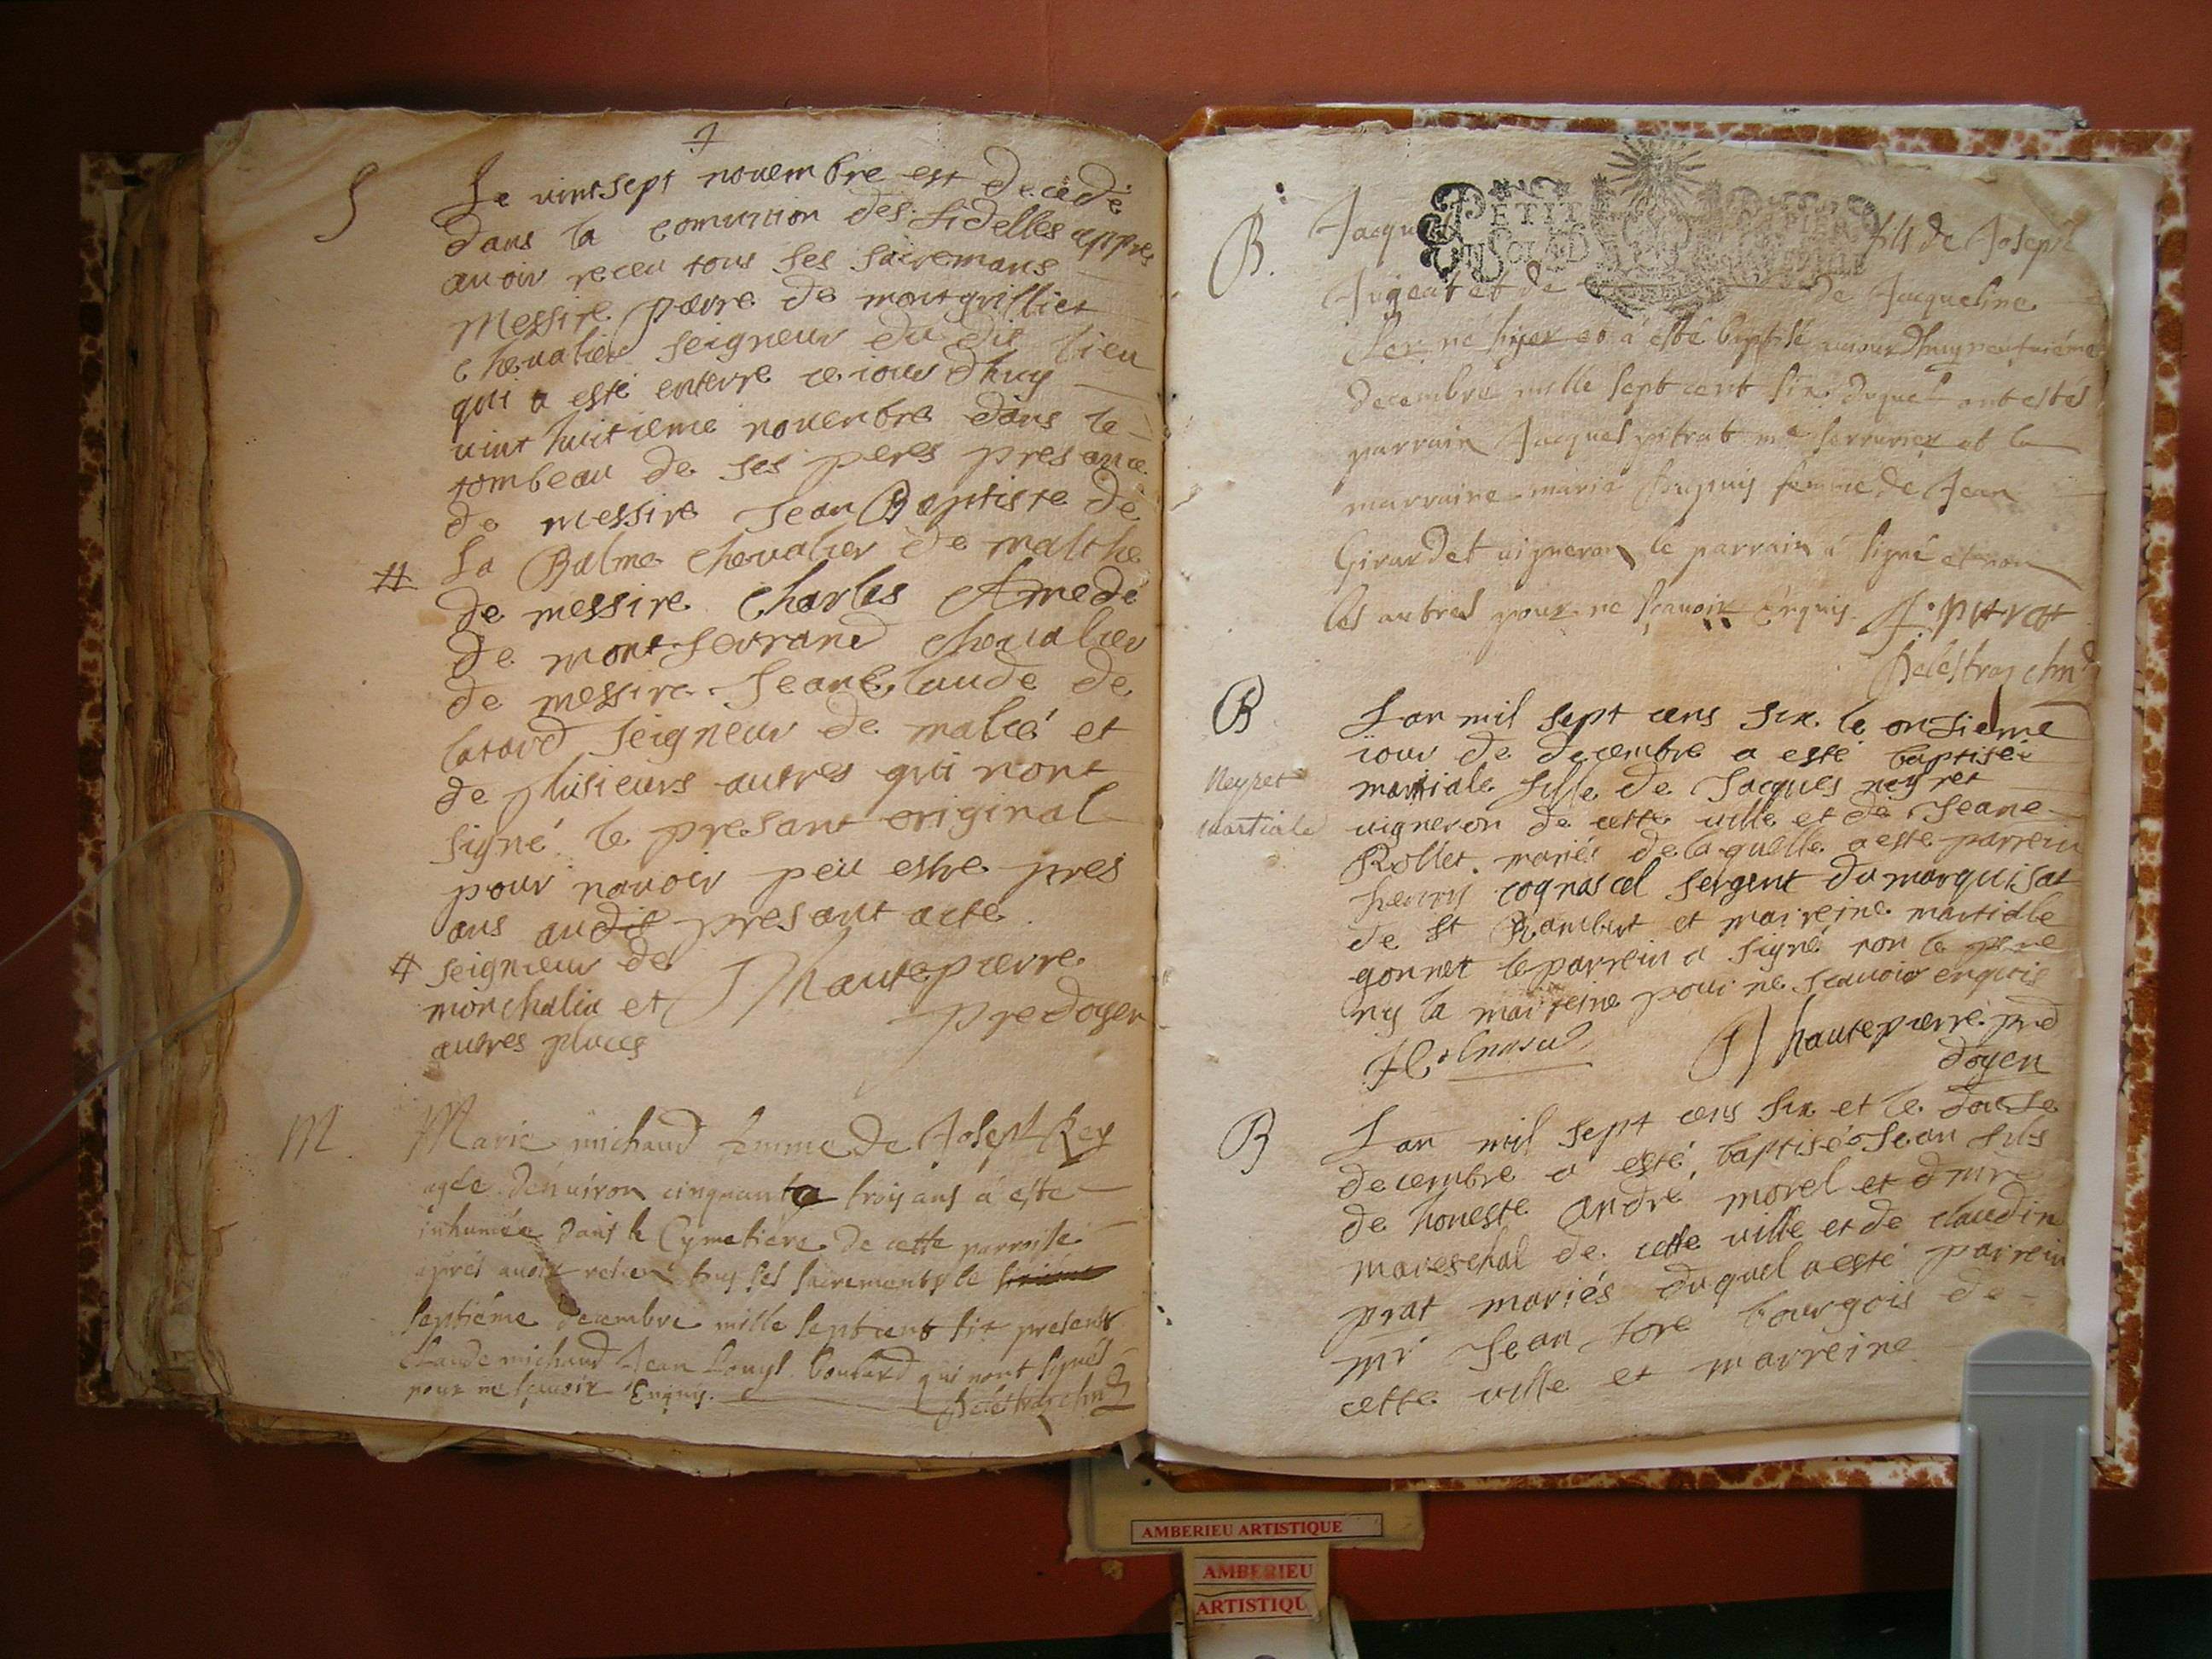 S
Le vint sept novembre est decedé
dans la comunion des fidelles appres
avoir receu tous ses sacremans
Messire pierre de montgrillier
chevalier seigneur du dit lieu
qui a esté enterré ce iour dhuy
vint huitieme novembre dans le
tombeau de ses peres presance
de messire Jean Baptiste de
# La Balme chevalier de malthe
de messire Charles Amedé
de montferrand chevalier
de messire Jean Claude de
seigneur de et
de plusieurs autres qui nont
signé le presant original
pour navoir peu estre pres
ans audit presant acte.
# seigneur de
monchalin et
autres places
hautepierre
pre doyen
M.
Marie michaud femme de Joseph Rey
agée denviron cinquante trois ans a esté
inhumée dans le Cymetiére de cette parroisse
aprés avoir receu tous ses sacrements le
septiéme decembre mille sept cent six presents
claude michaud Jean boutard qui nont signés
pour ne scavoir Enquis.
B.
Jacque fils de Joseph
de Jacqueline
né hyer et a esté baptisé aujourdhuy neufviéme
decembre mille sept cent six duquel ont estés
parrain Jacques pitrat me serrurier et la
marraine marie femme de Jean
Girardet vigneron le parrain a signé et non
les autres pour ne scavoir Enquis. J. pitrat
PETIT PAPIER
B
Lan mil sept cens six le onsieme
iour de decembre a esté baptisée
Neyret
martiale fille de Jacques neyret
Martiale
vigneron de cette ville et de Jeane
Rollet mariés de laquelle a esté parrein
henry cognascel sergent du marquisat
de st Rambert et marreine martiale
gonnet le parrein a signé non le pere
ny la marreine pour ne scavoir enquis
hautepierre pred
doyen
B
Lan mil sept cens six et le douse
decembre a esté baptisé Jean fils
de honeste andré morel et dmre
mareschal de cette ville et de claudin
prat mariés duquel a esté parrein
mr Jean bourgois de
cette ville et marreine
AMBERIEU ARTISTIQUE
AMBERIEU
ARTISTIQU